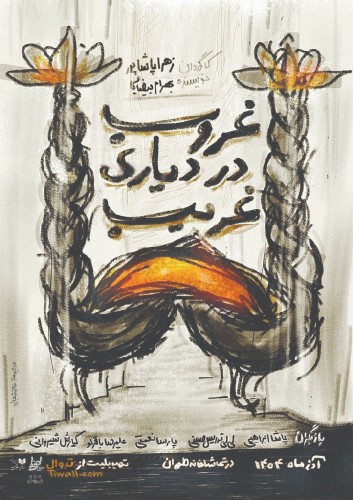 کارگردان زهرا پاشاپور
نویسنده بهرام بیضایی
غروب
در دیاری
غریب
بازیگران پاشا ابراهیمی
پارسا نعمتی علیرضا باقرلو
آذر ماه ۱۴۰۴ در تماشاخانه طهران
تهیه بلیت از تیوال
Tiwall.com